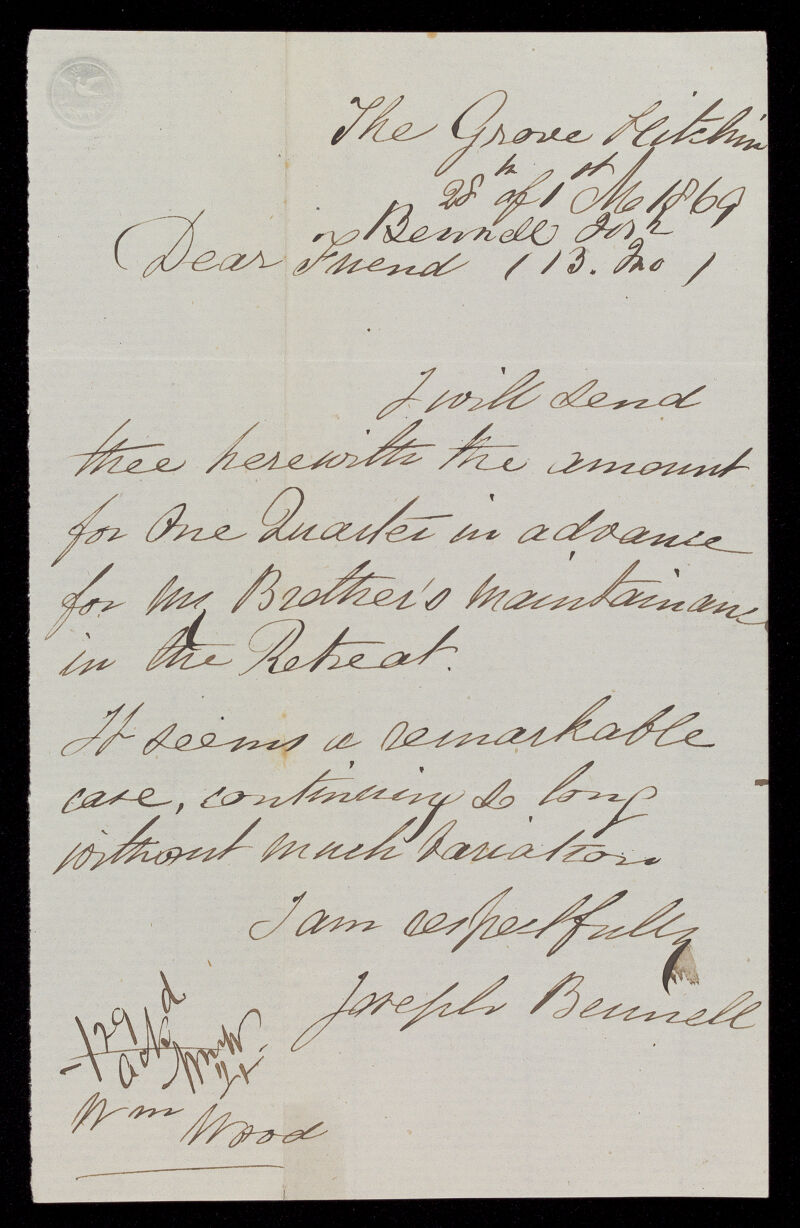 The Grove Hitchin
28th of 1st Mo 1869
Bennell Josh
Dear Friend ( 13. Mo )
I will send
thee herewith the amount
for One Quarter in advance
for my Brother's maintainance
in the Retreat.
It seems a remarkable
case, continuing so long
without much variation
I am respectfully
Joseph Bennell
1 29
ackd
Wm Wood